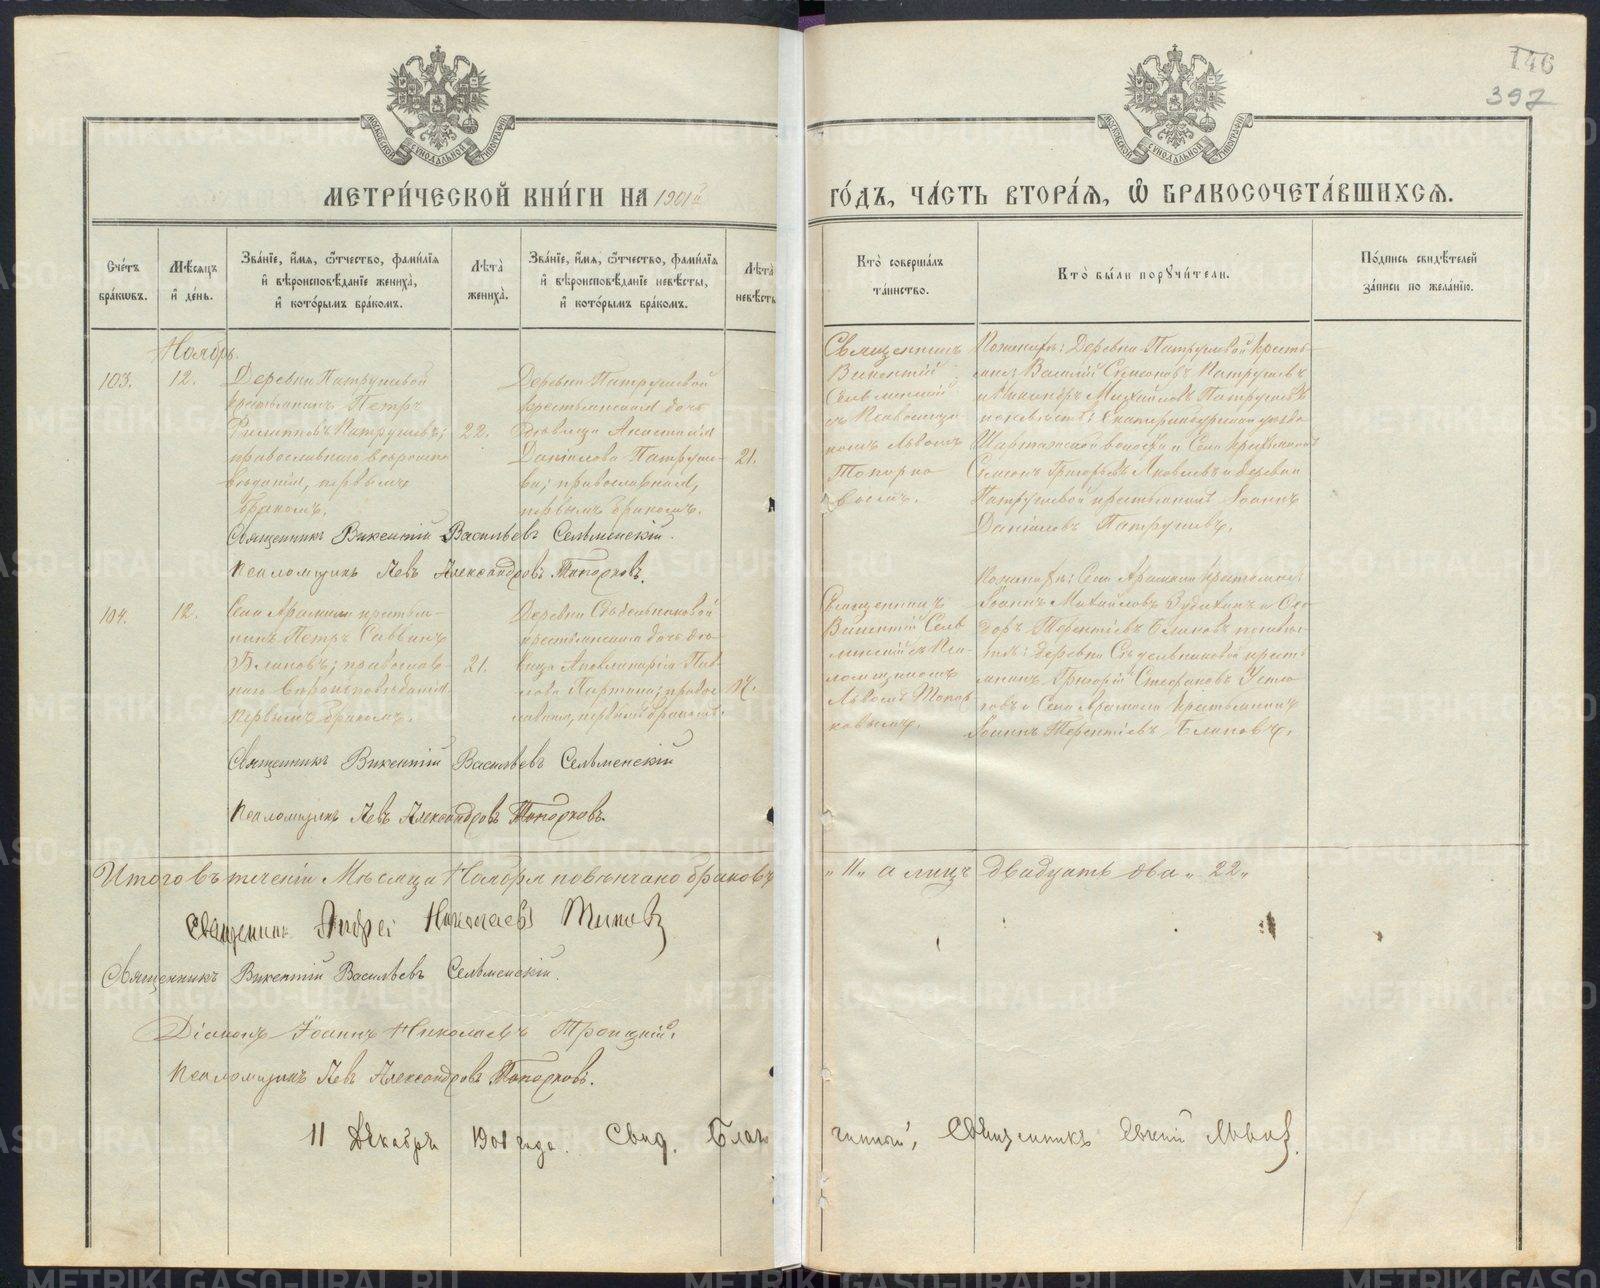 146
397
МОСКОВСКОЙ СѴНОДАЛЬНОЙ ТИПОГРАФІИ
МОСКОВСКОЙ СѴНОДАЛЬНОЙ ТИПОГРАФІИ
МЕТРИ́ЧЕСКОЙ КНИ́ГИ НА 1901й
ГО́ДЪ, ЧА́СТЬ ВТОРА́Я, Ѡ БРАКОСОЧЕТА́ВШИХСЯ.
Сче́тъ бра́кωвъ.
Мѣ́сяцъ и҆ де́нь.
Зва́нїе, и҆́мя, ѻ҆́тчество, фами́лїя
и҆ вѣроисповѣ́данїе жениха̀,
и҆ кото́рымъ бра́комъ.
Лѣта̀ жениха̀.
Зва́нїе, и҆́мя, ѻ҆́тчество, фами́лїя
и҆ вѣроисповѣ́данїе невѣ́сты,
и҆ кото́рымъ бра́комъ.
Лѣта̀ невѣ́сты
Кто̀ соверша́лъ та́инство.
Кто̀ бы́ли порꙋчи́тели.
По́дпись свидѣ́телей за́писи по жела́нїю.
Ноябрь.
103.
12.
Деревни Патрушевой
крестьянинъ Петръ
Филипповъ Патрушевъ;
православнаго вѣроиспо
вѣданія, первымъ
бракомъ.
22.
Деревни Патрушевой
крестьянская дочь
дѣвица Анастасія
Даніилова Патруше-
ва; православная,
первымъ бракомъ.
21.
Священникъ
Викентій
Сельменскій
съ Псаломщи
комъ Львомъ
Топорко
вымъ.
Поженихѣ: Деревни Патрушевой кресть-
яне: Василій Симеоновъ Патрушевъ
и Никаноръ Михайловъ Патрушевъ
поневѣстѣ: Екатеринбургскаго уѣзда
Шарташской волости и Села
Симеонъ Григорьевъ Яковлевъ и деревни
Патрушевой крестьянинъ Іоаннъ
Даніиловъ Патрушевъ.
Священникъ Викентій Васильевъ Сельменскій.
Псаломщикъ Левъ Александровъ Топорковъ.
104.
12.
Села Арамили крестья-
нинъ Петръ Саввинъ
Блиновъ; православ-
наго вѣроисповѣданія
первымъ бракомъ.
21.
Деревни Сѣдельниковой
крестьянская дочь дѣ
вица Аполлинарія Пав
лова Паргина; правос
лавная, первымъ бракомъ.
Священникъ
Викентій Сель
менскій съ Пса-
ломщикомъ
Львомъ Топор
ковымъ.
Поженихѣ: Села Арамили крестьяне:
Іоаннъ Михайловъ Зудихинъ и Ѳео
доръ Терентіевъ Блиновъ поневѣс
тѣ: деревни Сѣдельниковой кресть
янинъ Григорій Стефановъ
и Села Арамили крестьянинъ
Іоаннъ Терентіевъ Блиновъ.
Священникъ Викентій Васильевъ Сельменскій
Псаломщикъ Левъ Александровъ Топорковъ.
Итого въ теченіи Мѣсяца Ноября повѣнчано браковъ „11„ а лицъ двадцать два „22„
Священник Андрей Николаевъ Титовъ
Священникъ Викентій Васильевъ Сельменскій.
Діаконъ Іоаннъ Николаевъ Троицкій.
Псаломщикъ Левъ Александровъ Топорковъ.
11 Декабря 1901 года. Свид. Благочинный, Священникъ Евгній Львовъ.
METRIKI.GASO-URAL.RU